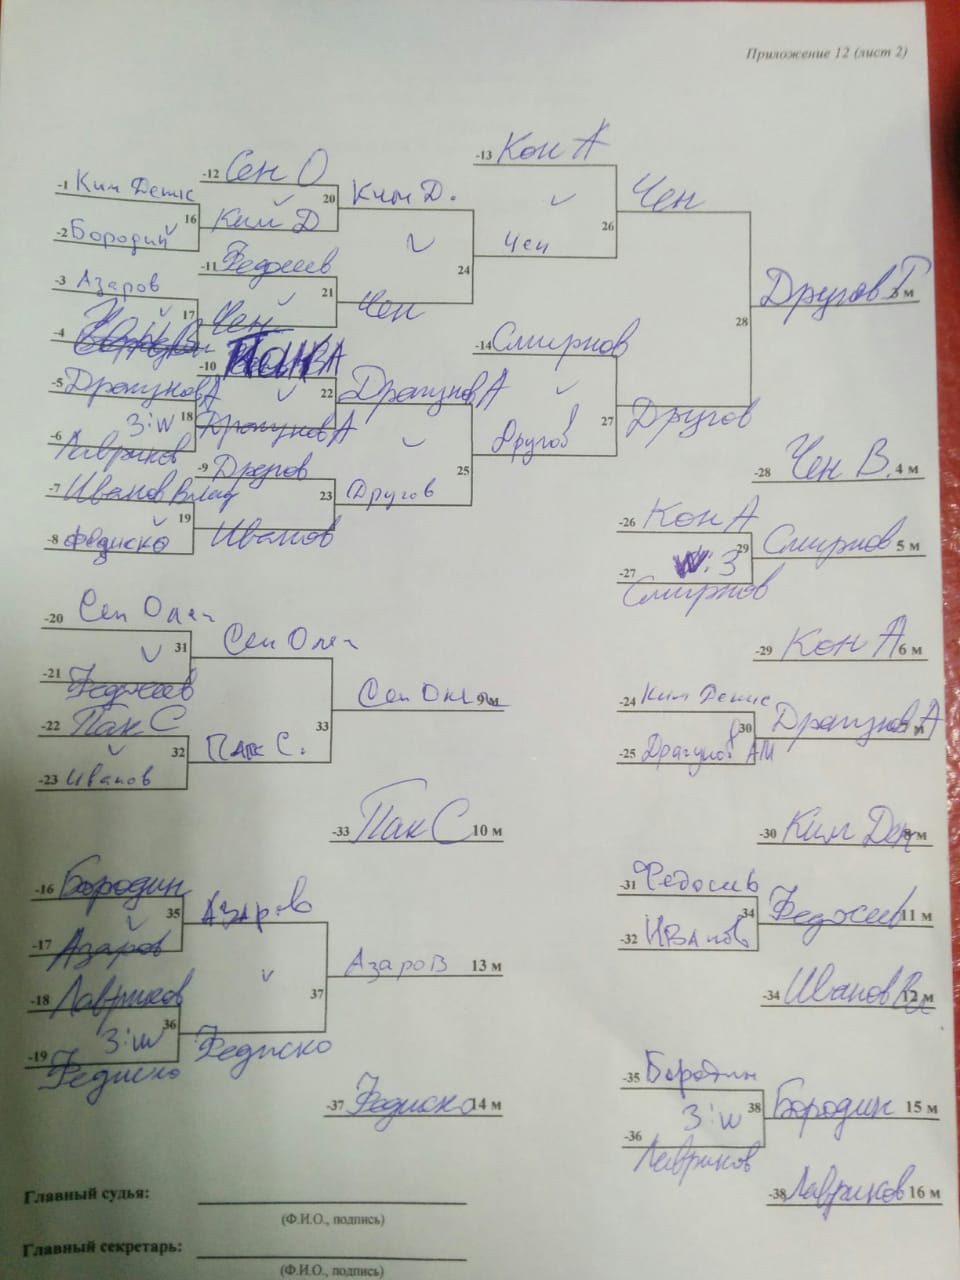 Приложение 12 (лист 2)
-1 Ким Денис
-2 Бородин
16
-3 Азаров
-4
17
-5 Драгунов А
3:w 18
-6 Лавриков
-7 Иванов Влад
19
-8 Федиско
-12 Сен О
20
Ким Д
-11 Федосеев
21
Чен
-10 Пак
22
Драгунов А
-9 Другов
23
Иванов
Ким Д.
24
Чен
Драгунов А
25
Другов
-13 Кон А
26
Чен
-14 Смирнов
27
Другов
Чен
28
Другов
Другов Г
3 м
-28 Чен В. 4 м
-26 Кон А
w:3 29
-27 Смирнов
Смирнов 5 м
-29 Кон А 6 м
-24 Ким Денис
30
-25 Драгунов АМ
Драгунов А
7 м
-30 Ким Ден 8 м
-20 Сен Олег
31
-21 Федосеев
-22 Пак С
32
-23 Иванов
Сен Олег
33
Пак С.
Сен Олег 9 м
-33 Пак С 10 м
-31 Федосеев
34
-32 Иванов
Федосеев 11 м
-34 Иванов Вл 12 м
-16 Бородин
35
-17 Азаров
-18 Лавриков
3:w 36
-19 Федиско
Азаров
37
Федиско
Азаров 13 м
-37 Федиско 14 м
-35 Бородин
3:w 38
-36 Лавриков
Бородин 15 м
-38 Лавриков 16 м
Главный судья:
(Ф.И.О., подпись)
Главный секретарь:
(Ф.И.О., подпись)